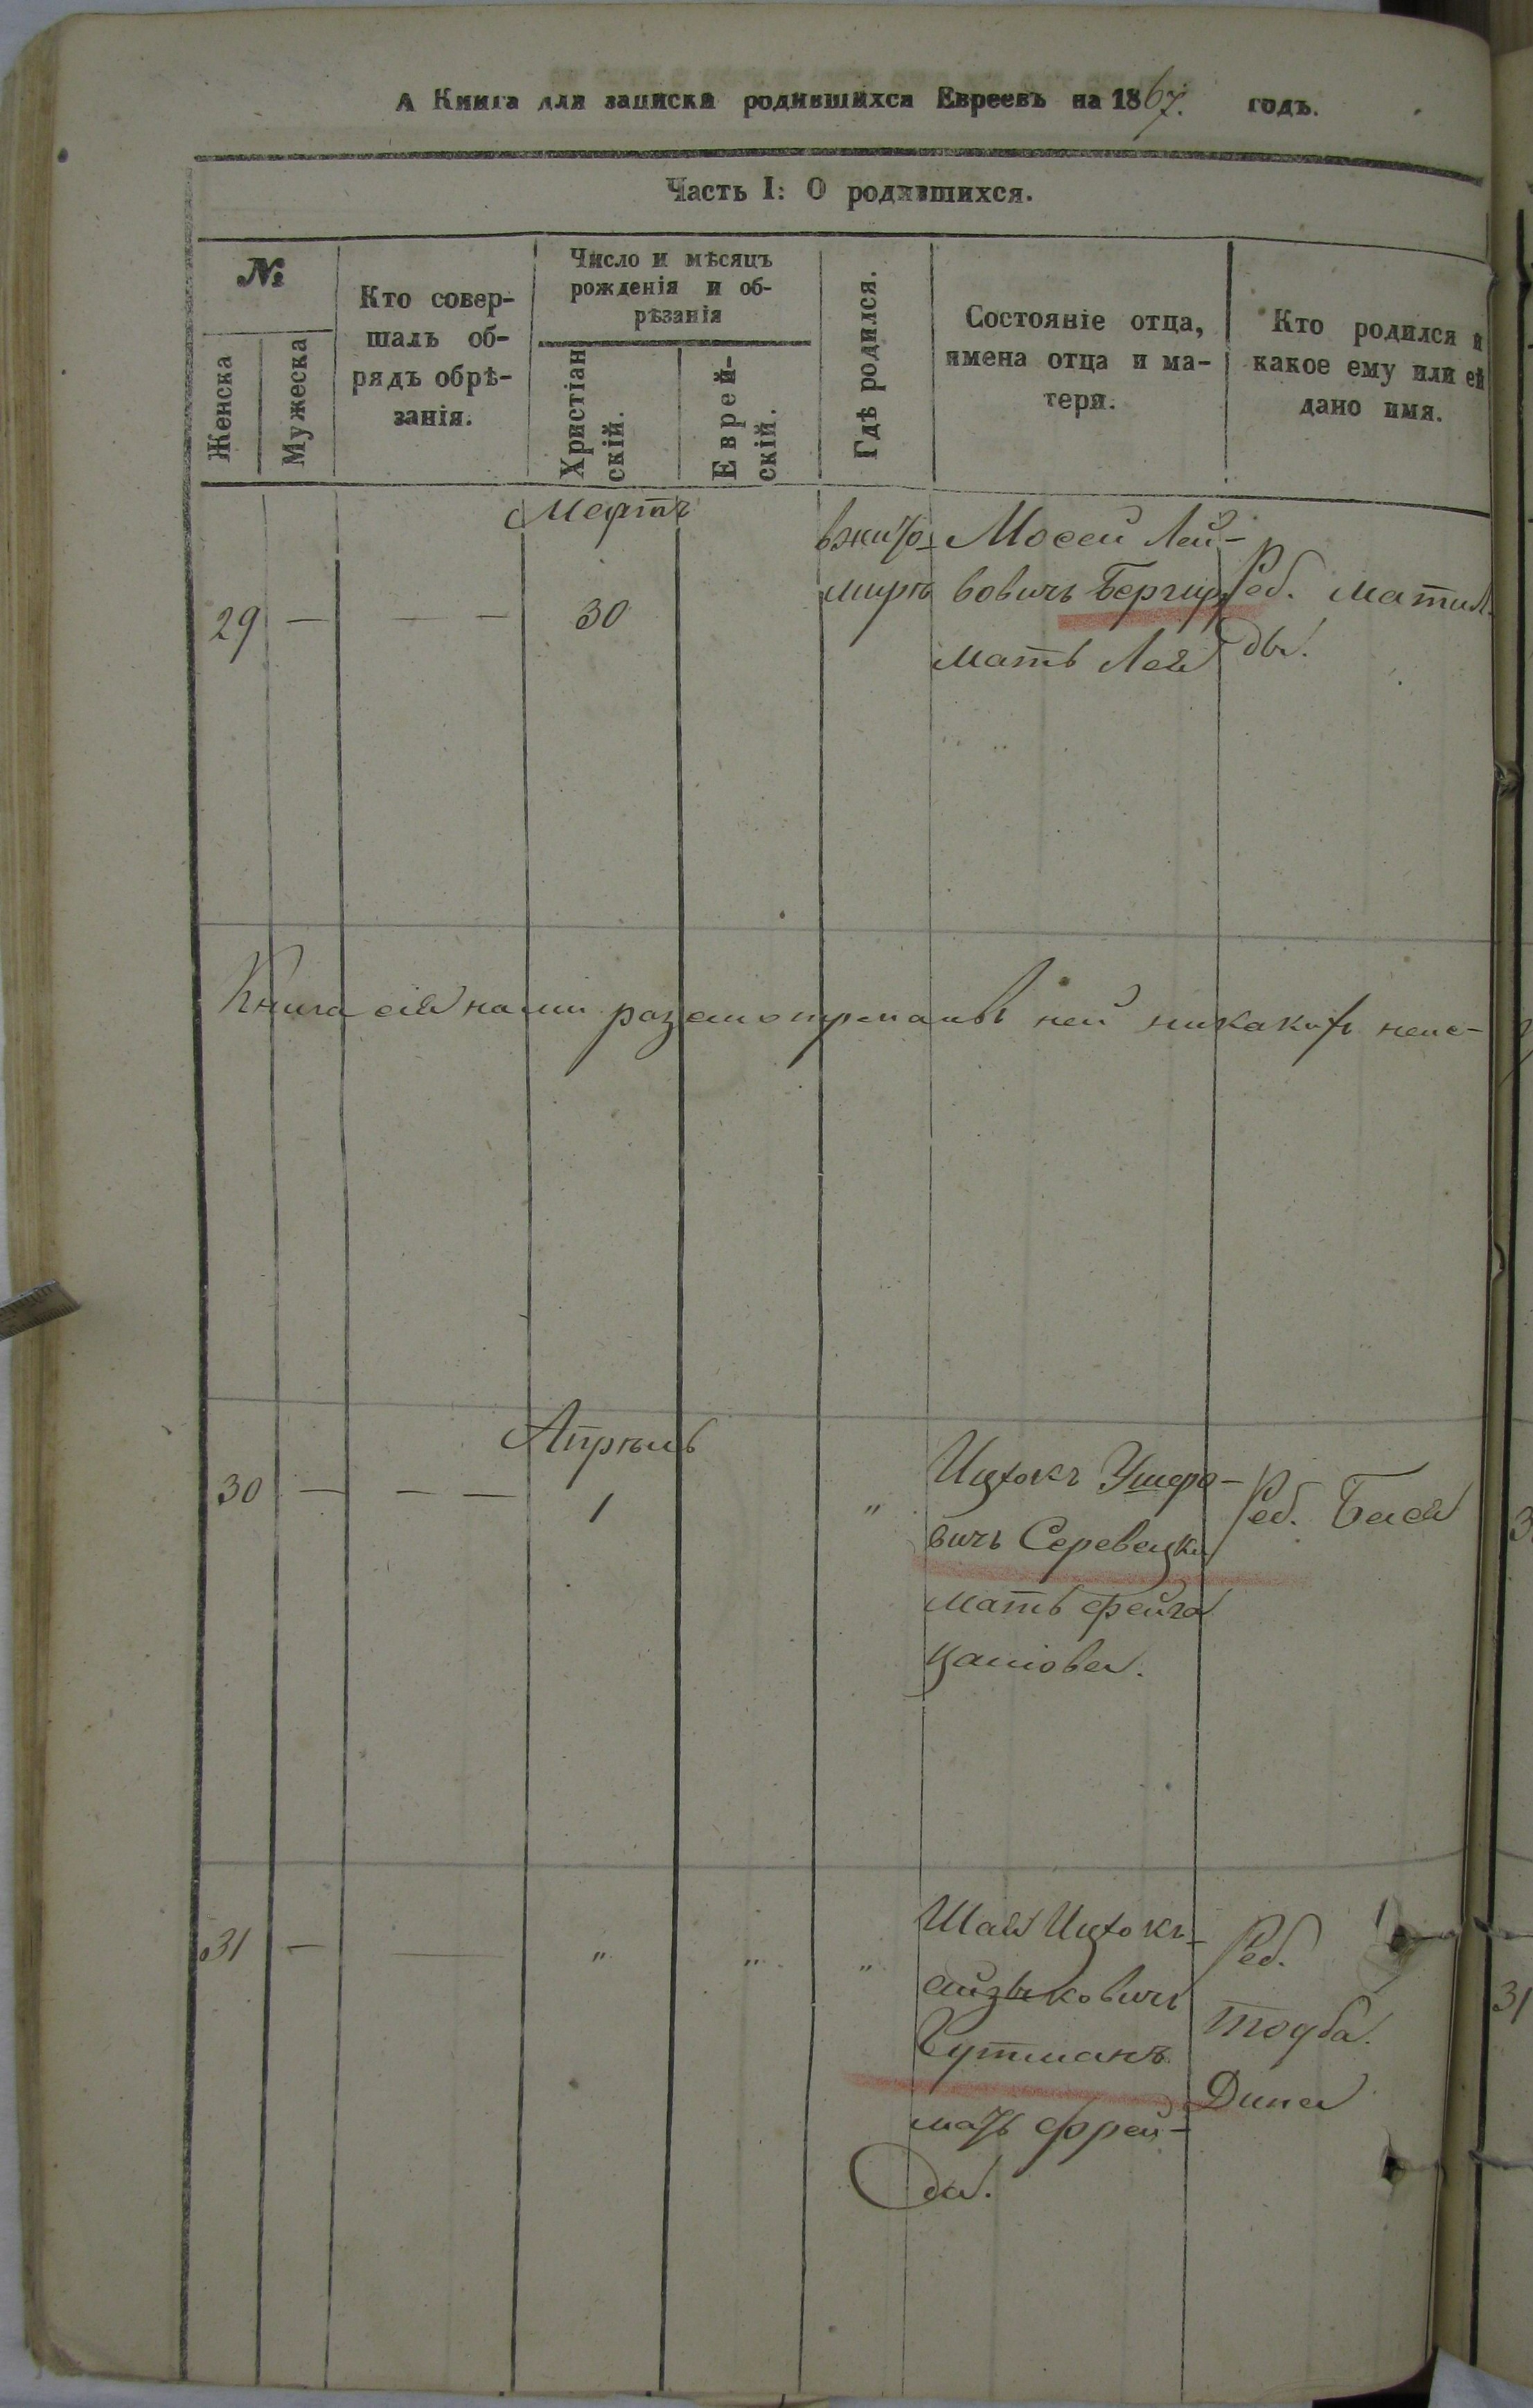 А Книга для записки родившихся Евреевъ на 1867. годъ.
Часть I: О родившихся.
№
Женска
Мужеска
Кто совер-
шалъ об-
рядъ обрѣ-
занія.
Число и мѣсяцъ
рожденія и об-
рѣзанія
Христіан
скій.
Еврей-
скій.
Гдѣ родился.
Состояніе отца,
имена отца и ма-
тери.
Кто родился и
какое ему или ей
дано имя.
Мартъ
29 — — — 30
вжито-
миръ
Мосей Лей-
бовичъ
мать Лея
Род. Матил
да.
Книга сія нами разсмотренамвъ ней никакихъ неис-
Апрѣль
30 — — — 1 "
Ицхокъ Ушеро-
вичъ Серевецки
мать Фейга
Род. Бася
31 — — " " "
Шая Ицхокъ-
айзыковичъ
Гутманъ
мать Фрей-
да.
Род.
Тодба.
Дина
3
31